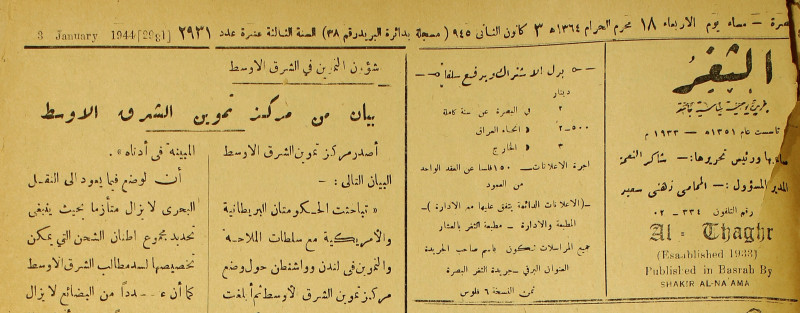 بصرة – مساء يوم الاربعاء ١٨ محرم الحرام ١٣٦٤ھ ٣ كانون الثانى ٩٤٥ ( مسجلة بدائرة البريد رقم ٣٨) السنة الثالثة عشرة عدد ٢٩٣١ 3 January 1944 [2931]
الثغر
جريدة يومية سياسية جامعة
تأسست عام ١٣٥١ھ – ١٩٣٣م
صاحبها ورئيس تحريرها: – شاكر النعمة
المدير المسؤول: – المحامى زهنى سعيد
رقم التلفون ٣٣٤ – ٠٢
Al - Thaghr
(Esaablished 1933)
Published in Basrah By
SHAKIR AL-NA AMA
بدل الاشتراك ويدفع سلفا
دينار
٢ في البصرة عن سنة كاملة
٢-٥٠٠ » انحاء العراق
٣ » الخارج
اجرة الاعلانات – ١٥٠ فلسا عن العقد الواحد
من العمود
–(الاعلانات الدائمة يتفق عليها مع الادارة )–
المطبعة والادارة – مطبعة الثغر بالعشار
جميع المراسلات تكون باسم صاحب الجريدة
العنوان البرقي – جريدة الثغر البصرة
ثمن النسخة ٦ فلوس
شؤون التموين في الشرق الاوسط
بيان من مركز تموين الشرق الاوسط
أصدر مركز تموين الشرق الاوسط
البيان التالى : –
« تباحثت الحكومتان البريطانية
والامريكية مع سلطات الملاحة
والتموين فى لندن وواشنطن حول وضع
مركز تموين الشرق الاوسط ثم أبلغت
المبينة فى أدناه » .
أن لوضع فيما يعود الى النقل
البحرى لا يزال متأزما بحيث ينبغى
تحديد مجموع اطنان الشحن التي يمكن
تخصيصها لسد مطالب الشرق الاوسط
كما أن عدداً من البضائع لا يزال